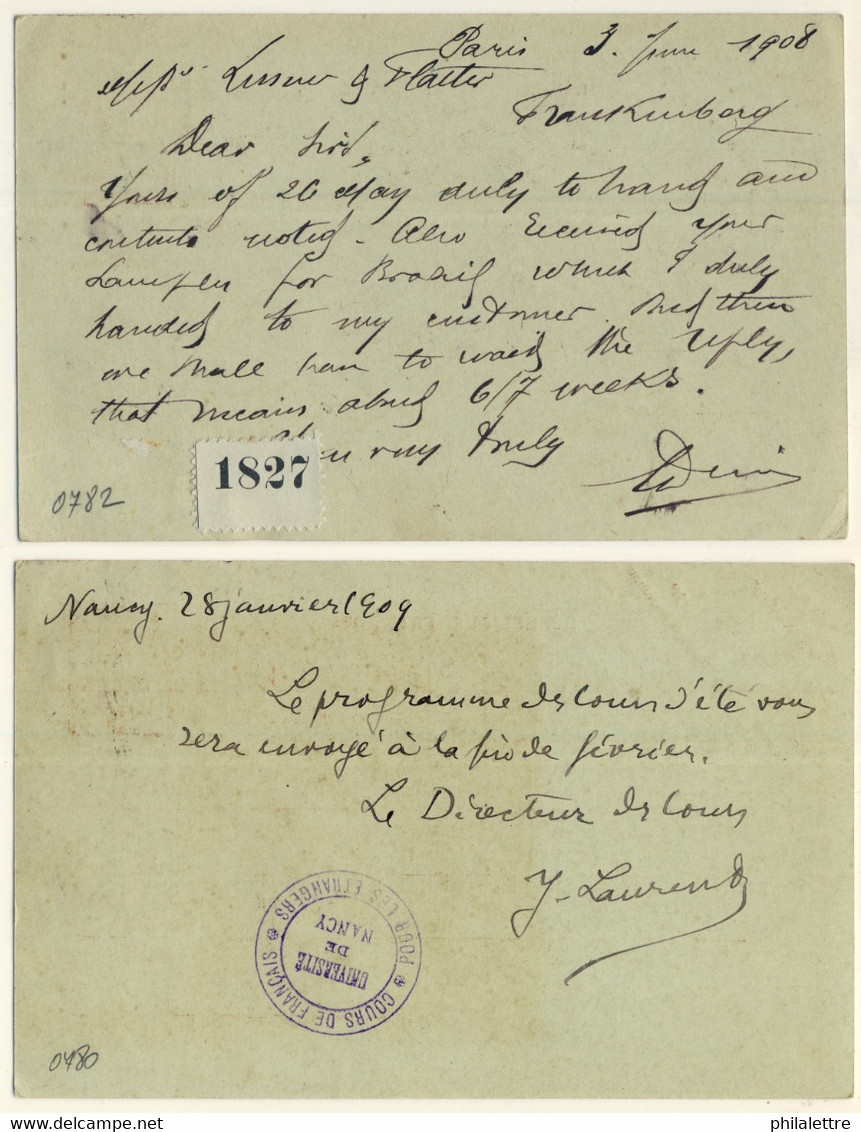 Paris 3 June 1908
Frankenberg
Dear Sirs,
Yours of 26 May duly to hand and
contents noted - Also received your
for Brazil which I duly
handed to my customer And then
we shall have to wait the reply,
that means about 6/7 weeks.
very truly
1827
0782
Nancy. 28 janvier 1909
Le programme des cours d'été vous
sera envoyé à la fin de février.
Le Directeur des Cours
Y. Laurent
COURS DE FRANÇAIS POUR LES ÉTRANGERS
UNIVERSITÉ
DE
NANCY
0780
delcampe.net
philalettre